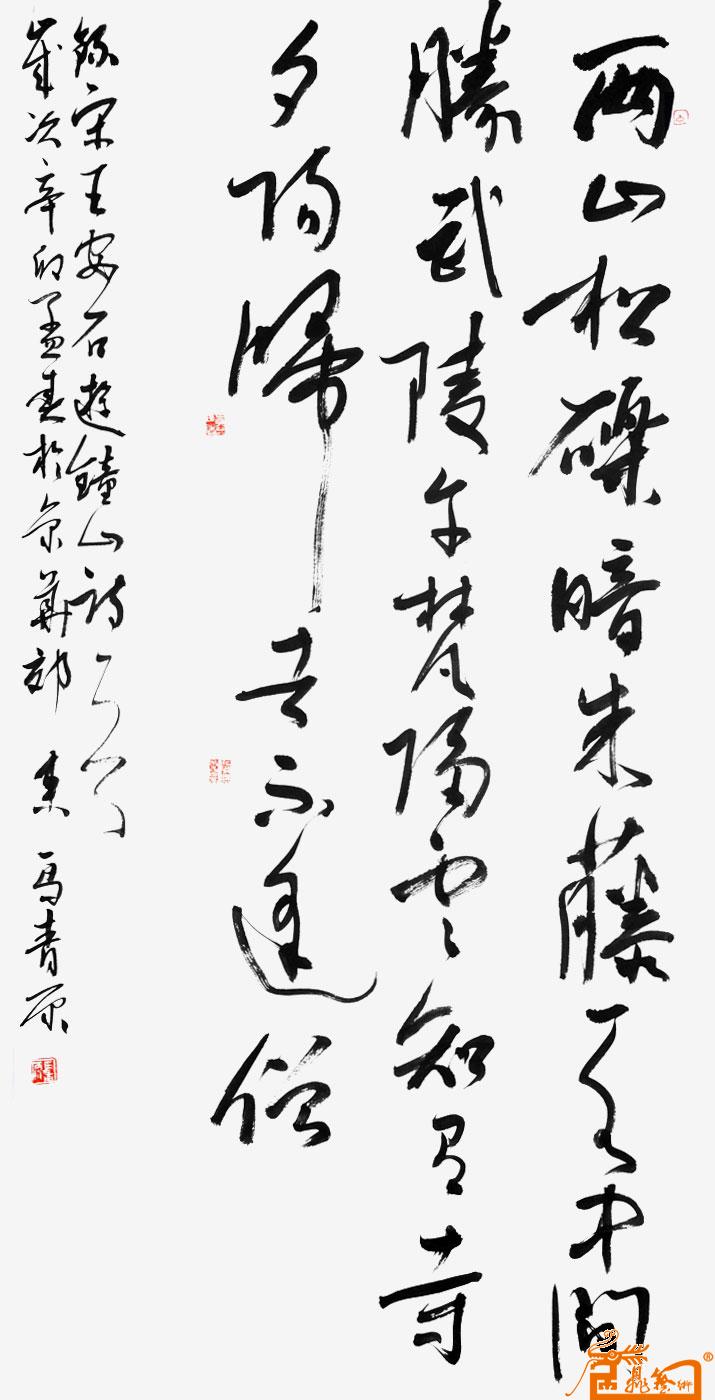 兩山松礫暗朱藤一水中間
勝武陵午梵隔雲知有寺
夕陽歸去不逢僧
錄宋王安石遊鐘山詩
歲次辛卯孟春於京華郊 馬青原